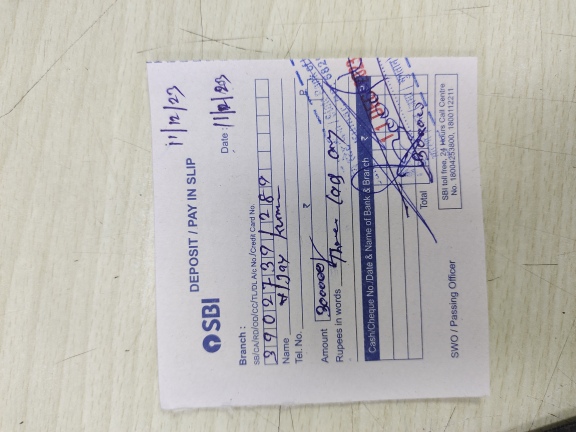 11/12/23
SBI
DEPOSIT / PAY IN SLIP
Branch :
Date : 11/12/23
SB/CA/RD/CC/TL/DL A/c No./Credit Card No.
39027391289
Name
Tel. No. ₹ P.
Amount 300000/
Rupees in words Three lag only
Cash/Cheque No./Date & Name of Bank & Branch ₹
Total 300000
SWO / Passing Officer
SBI toll free, 24 Hours Call Centre
No. 18004253800, 1800112211